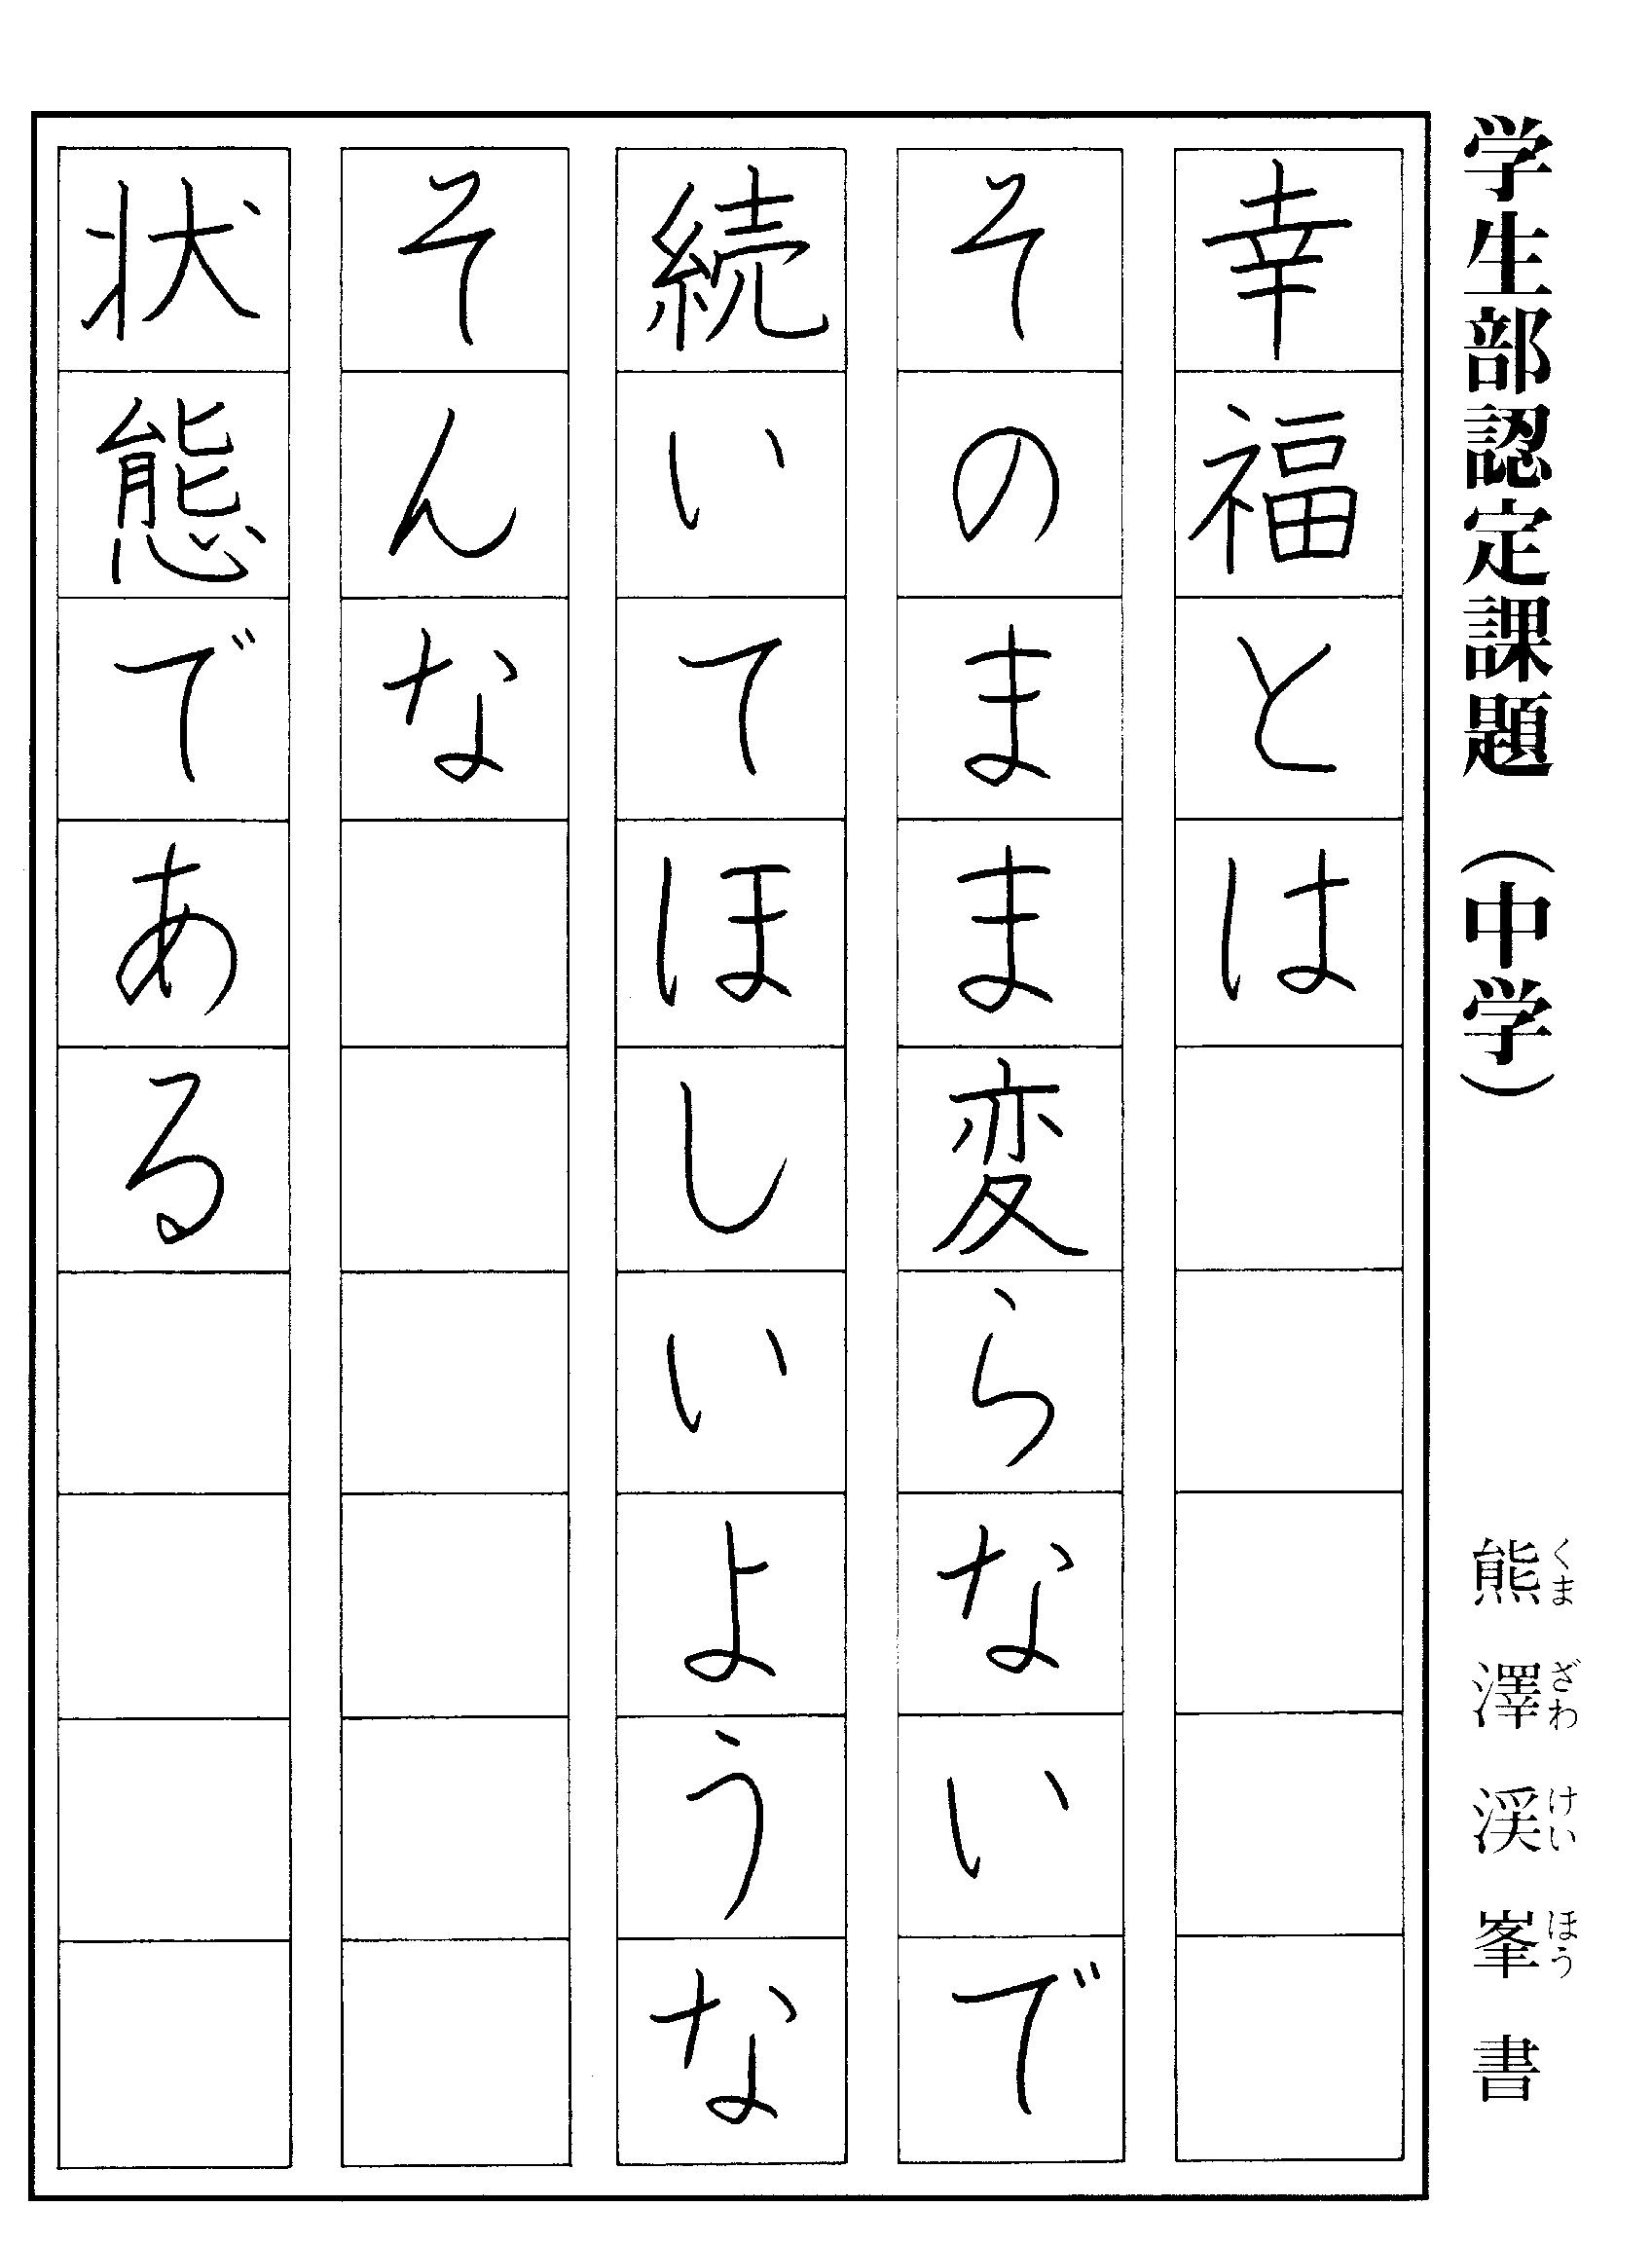 学生部認定課題（中学）
熊澤渓峯書
くまざわけいほう
幸福とは
そのまま変らないで
続いてほしいような
そんな
状態である